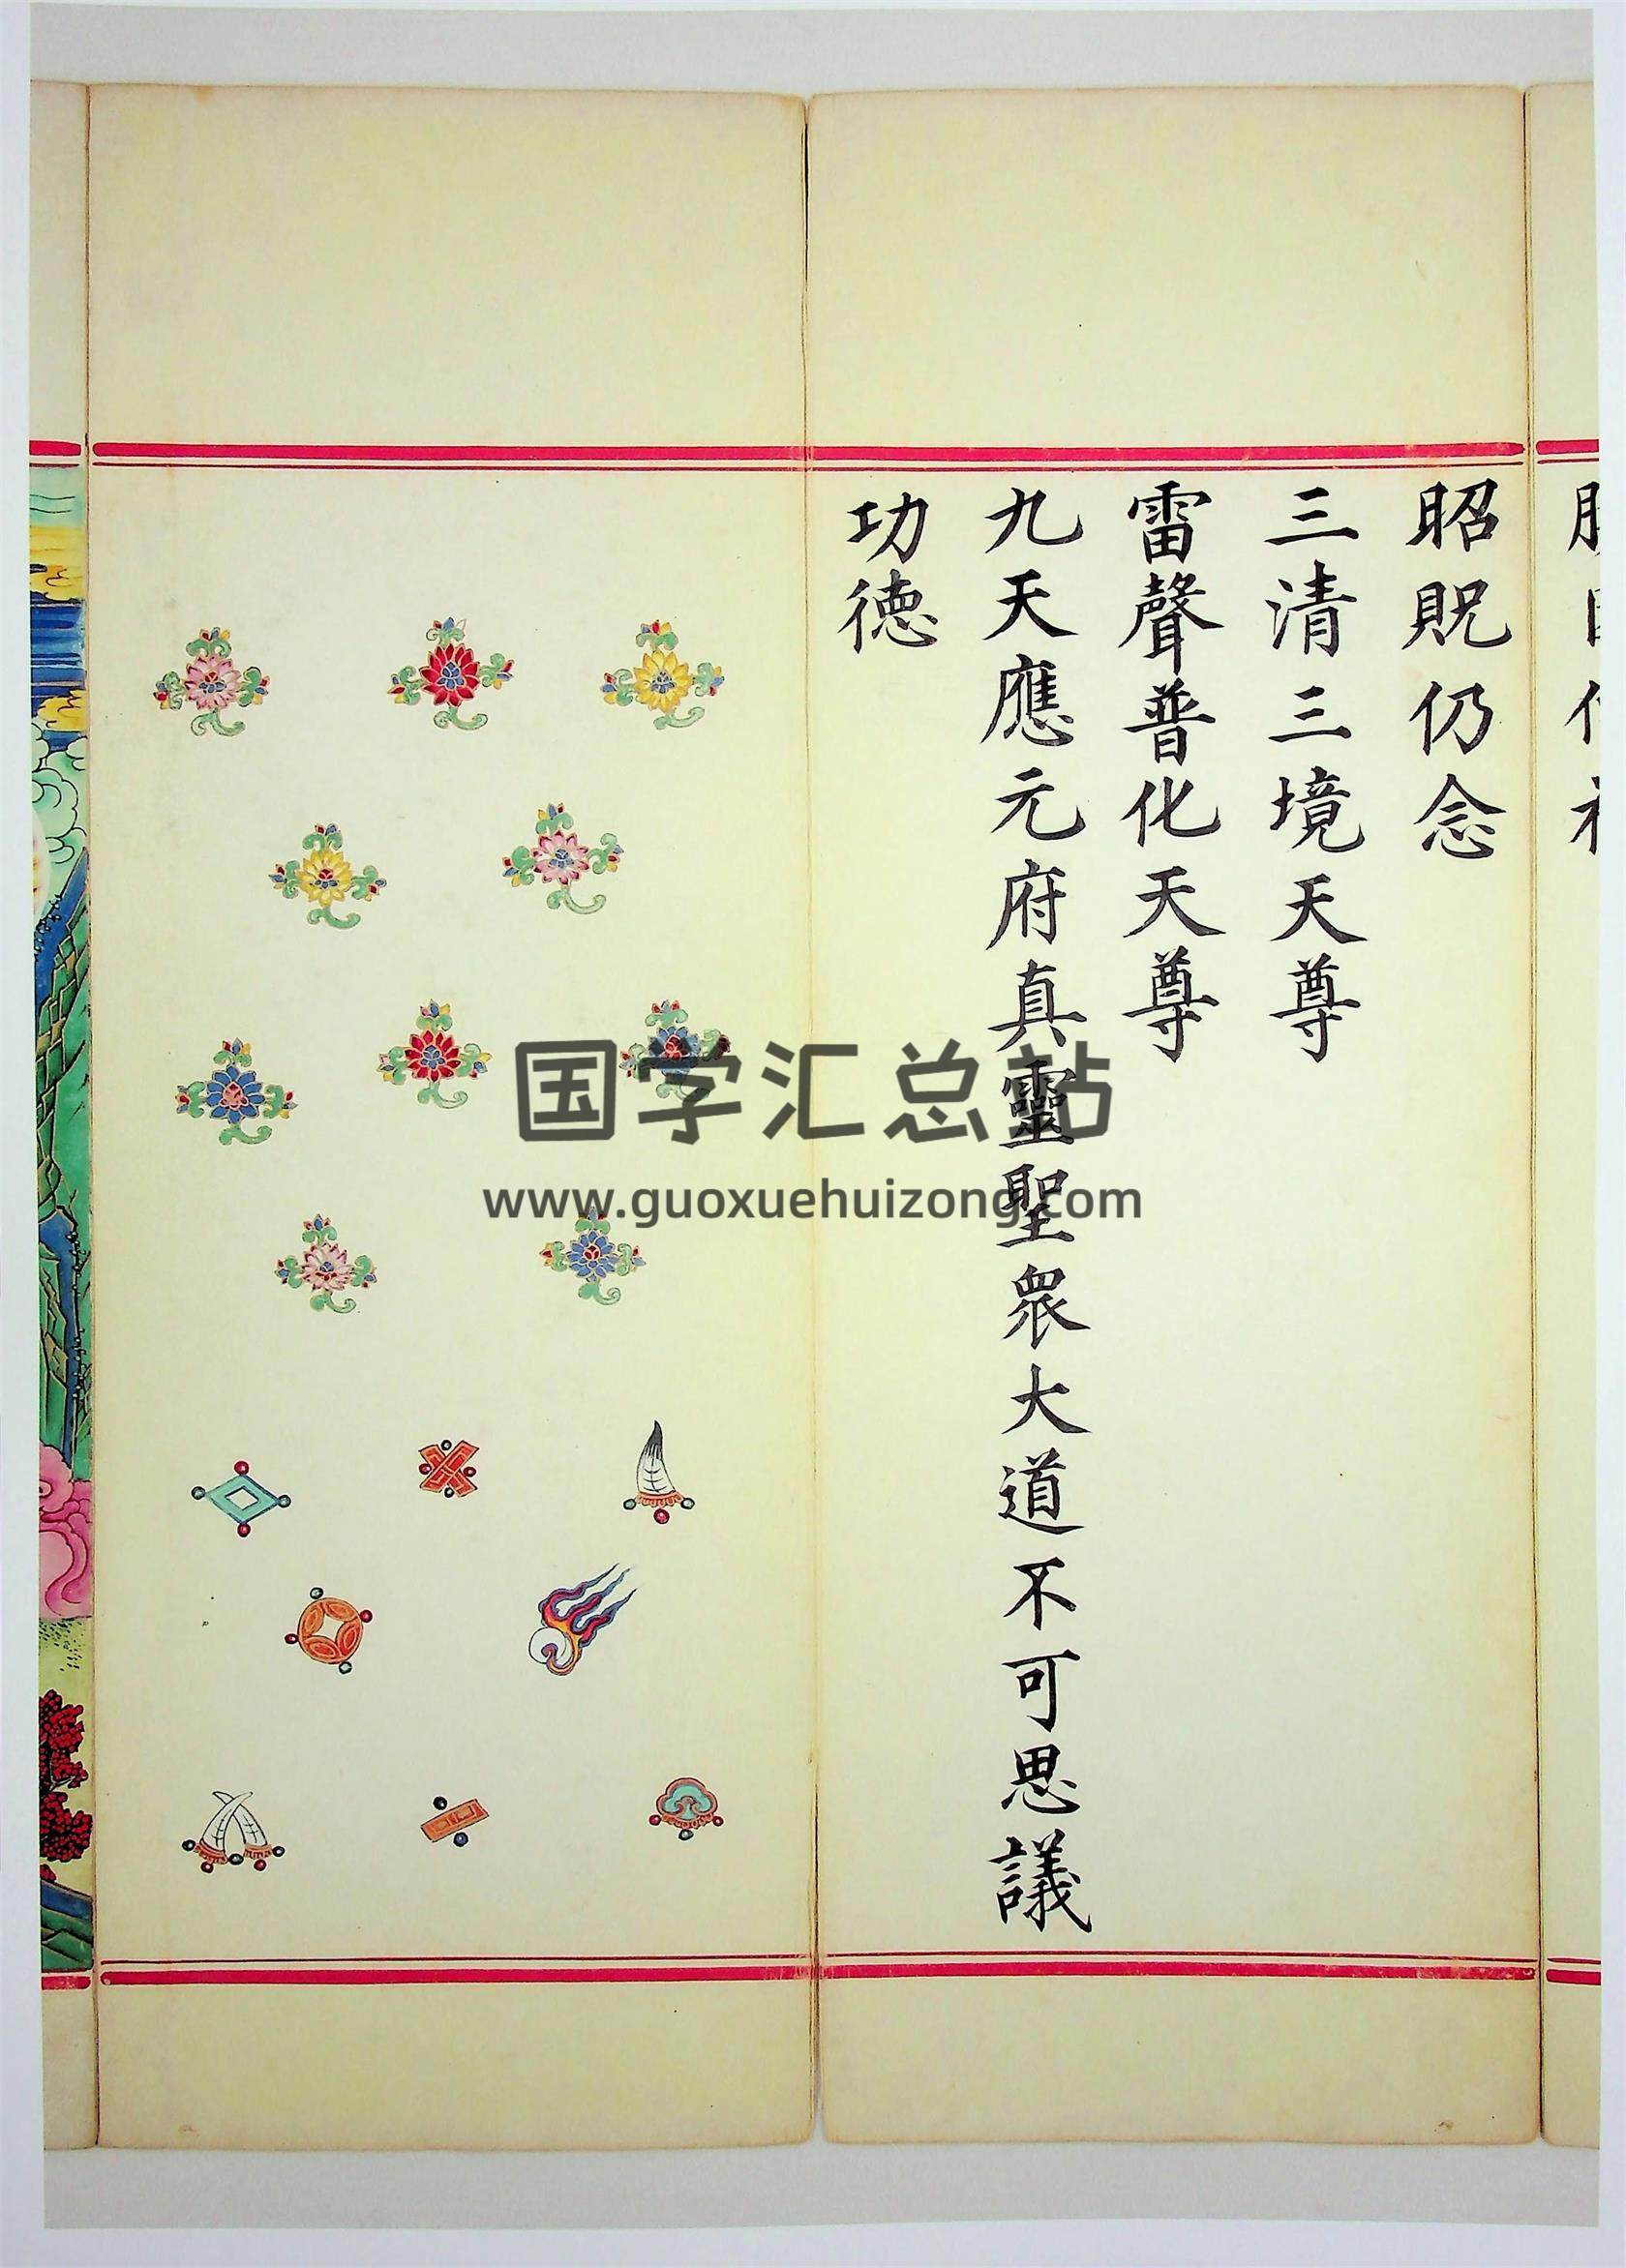 昭貺仍念
三清三境天尊
雷聲普化天尊
九天應元府真靈聖衆大道不可思議
功德
国学汇总站
www.guoxuehuizong.com